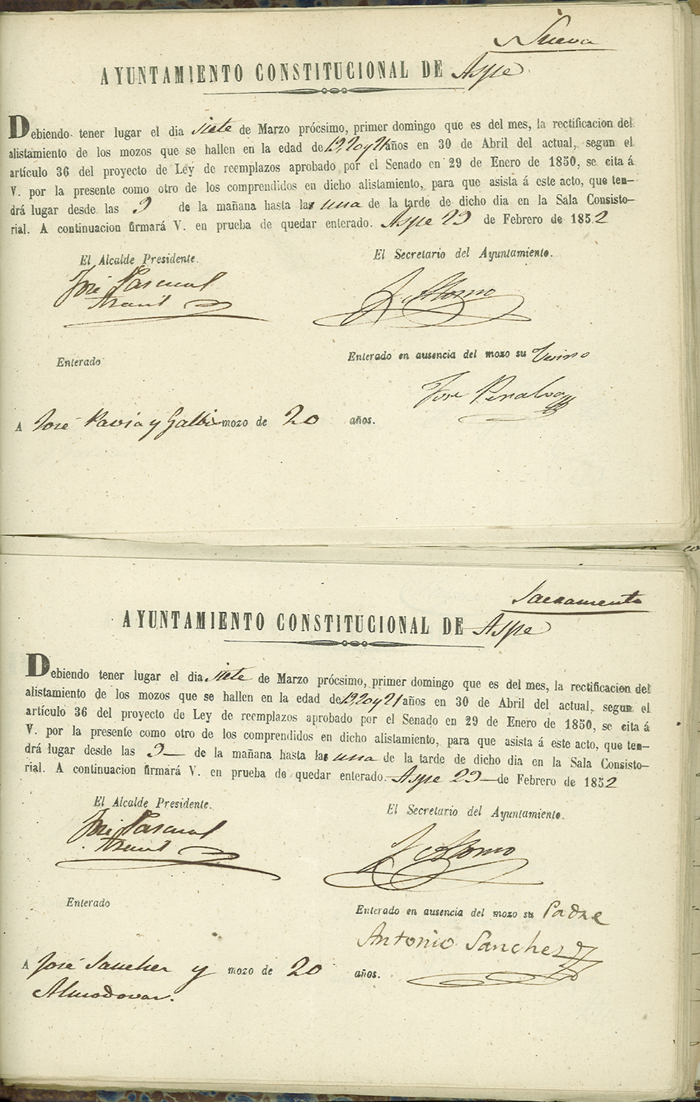 Nueva
AYUNTAMIENTO CONSTITUCIONAL DE Aspe
Debiendo tener lugar el dia siete de Marzo prócsimo, primer domingo que es del mes, la rectificacion del
alistamiento de los mozos que se hallen en la edad de 19, 20 y 21 años en 30 de Abril del actual, segun el
artículo 36 del proyecto de Ley de reemplazos aprobado por el Senado en 29 de Enero de 1850, se cita á
V. por la presente como otro de los comprendidos en dicho alistamiento, para que asista á este acto, que ten-
drá lugar desde las 9 de la mañana hasta las una de la tarde de dicho dia en la Sala Consisto-
rial. A continuacion firmará V. en prueba de quedar enterado. Aspe 29 de Febrero de 1852
El Alcalde Presidente.
El Secretario del Ayuntamiento.
José Pascual
Enterado
Enterado en ausencia del mozo su
José Penalva
A José Pavia y mozo de 20 años.
Sacramento
AYUNTAMIENTO CONSTITUCIONAL DE Aspe
Debiendo tener lugar el dia siete de Marzo prócsimo, primer domingo que es del mes, la rectificacion del
alistamiento de los mozos que se hallen en la edad de 19, 20 y 21 años en 30 de Abril del actual, segun el
artículo 36 del proyecto de Ley de reemplazos aprobado por el Senado en 29 de Enero de 1850, se cita á
V. por la presente como otro de los comprendidos en dicho alistamiento, para que asista á este acto, que ten-
drá lugar desde las 9 de la mañana hasta las una de la tarde de dicho dia en la Sala Consisto-
rial. A continuacion firmará V. en prueba de quedar enterado. Aspe 29 de Febrero de 1852
El Alcalde Presidente.
El Secretario del Ayuntamiento.
José Pascual
Enterado
Enterado en ausencia del mozo su Padre
Antonio Sanchez
A José Sanchez y mozo de 20 años.
Almodovar.